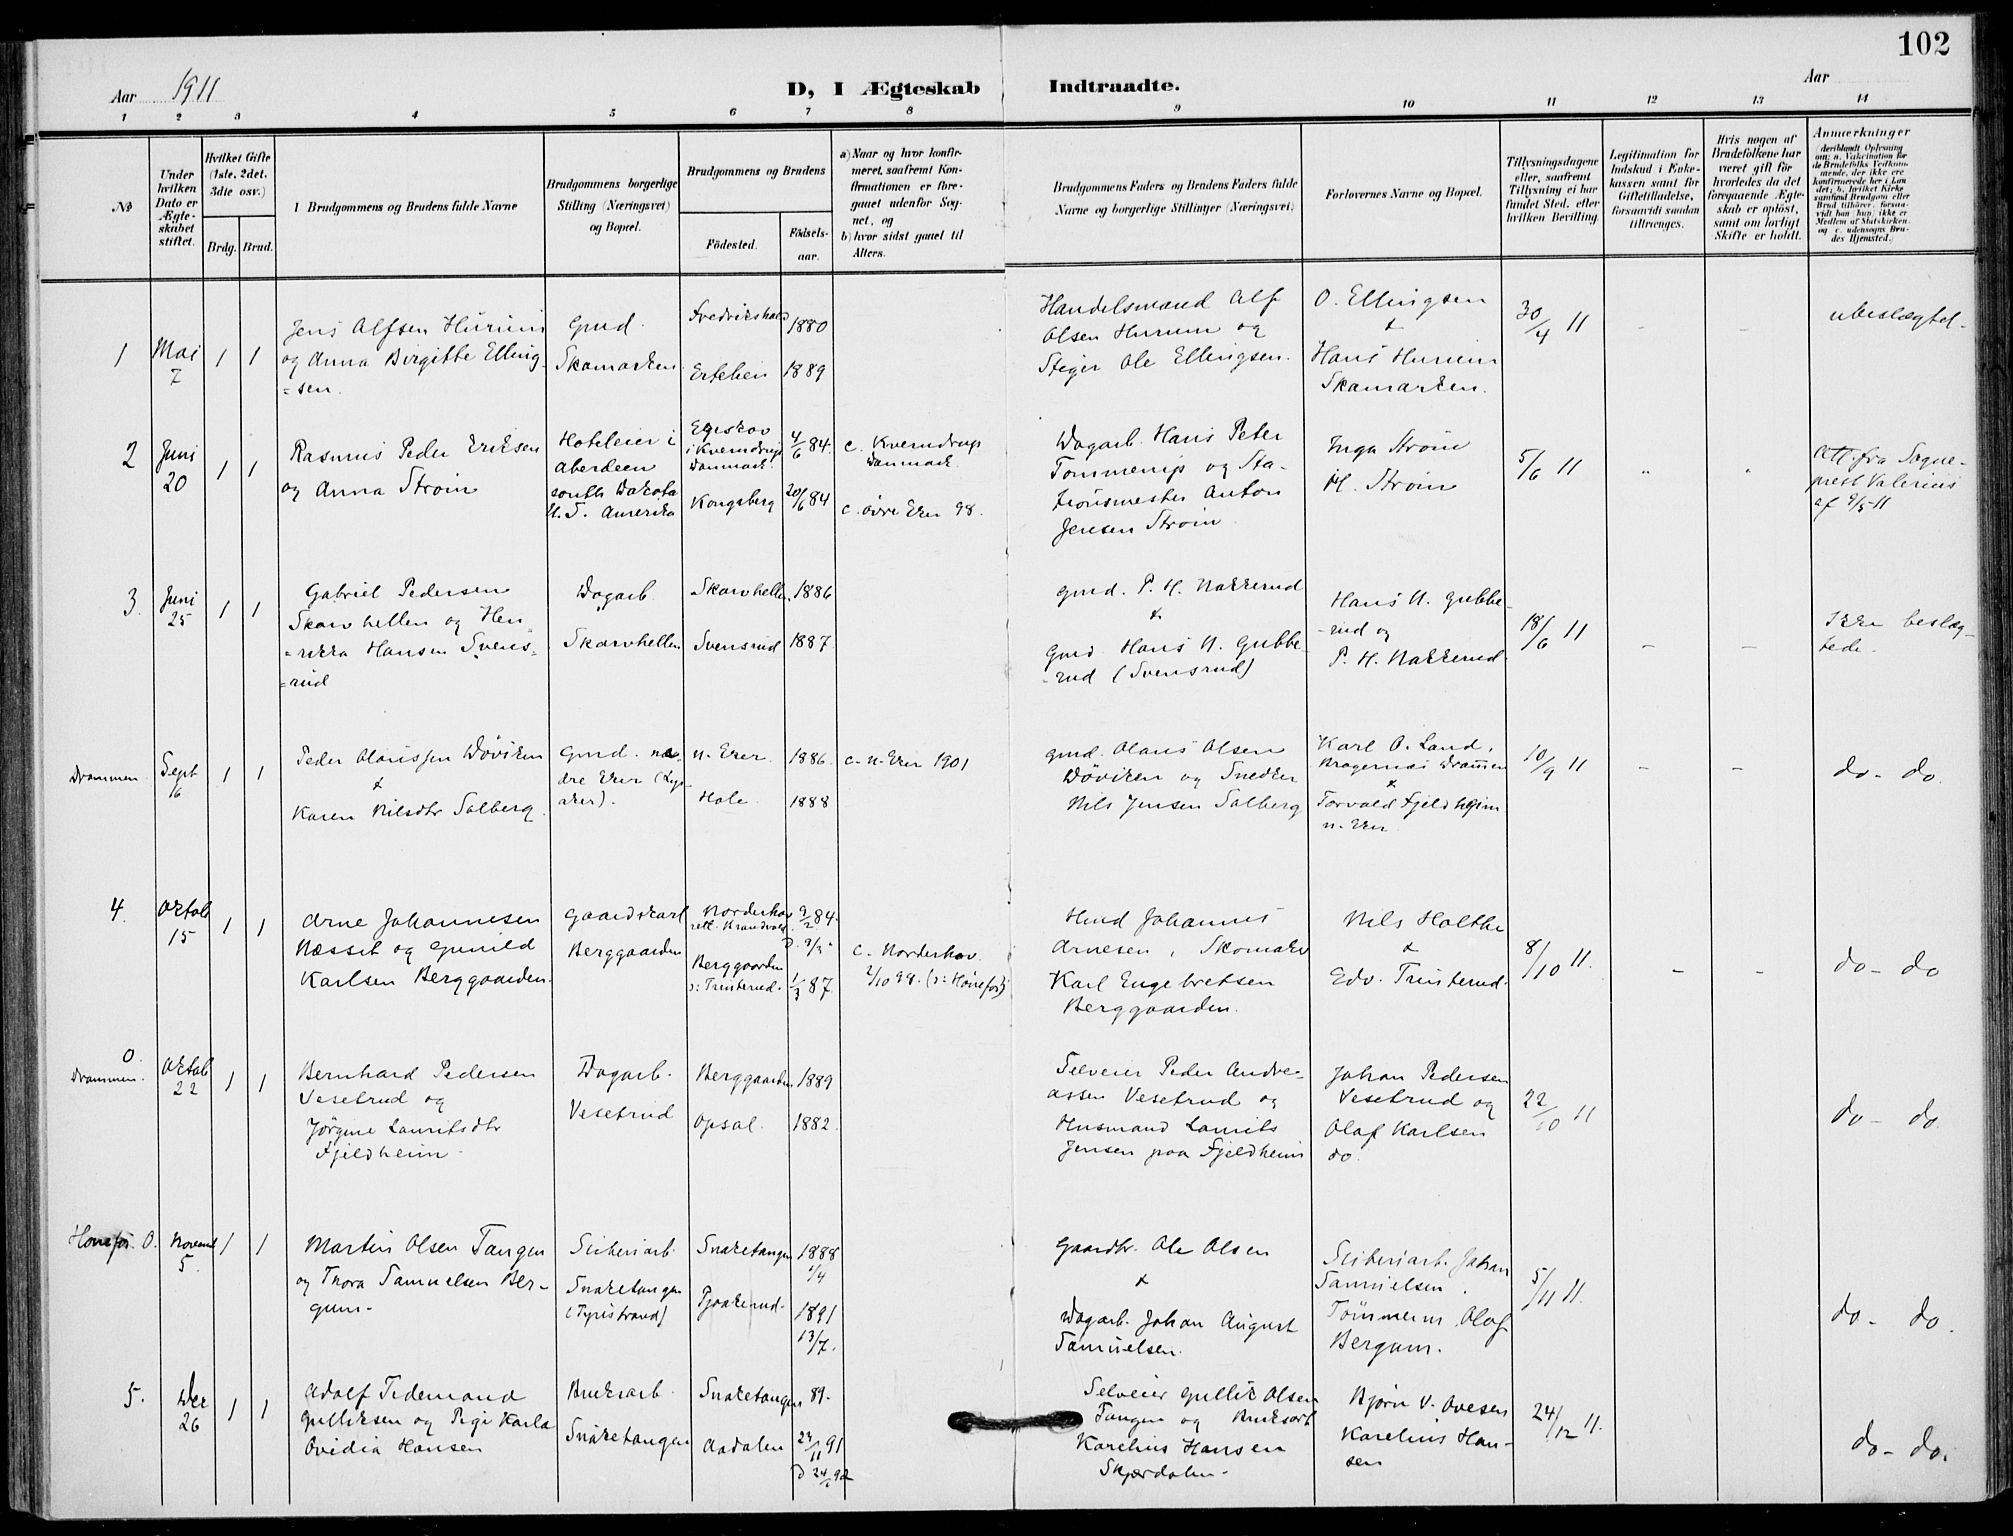 102
Aar 1911
D, I Ægteskab Indtraadte.
Aar
1 2 3 4 5 6 7 8 9 10 11 12 13 14
No
Under hvilken Dato er Ægteskabet stiftet.
Hvilket Gifte (1ste, 2det, 3dte osv.)
Brdg. Brud.
Brudgommens og Brudens fulde Navne
Brudgommens borgerlige Stilling (Næringsvei) og Bopæl.
Brudgommens og Brudens
Födested.
Födsels-aar.
a) Naar og hvor konfirmeret, saafremt Konfirmationen er foregaaet udenfor Sognet, og
b) hvor sidst gaaet til Alters.
Brudgommens Faders og Brudens Faders fulde Navne og borgerlige Stillinger (Næringsvei)
Forlovernes Navne og Bopæl.
Tillysningsdagene eller, saafremt Tillysning ei har fundet Sted, efter hvilken Bevilling.
Legitimation for Indskud i Enkekassen samt for Giftetilladelse, forsaavidt saadan tiltrænges.
Hvis nogen af Brudefolkene har været gift før hvorledes da det foregaaende Ægteskab er oplöst, samt om lovligt Skifte er holdt.
Anmærkninger
(deriblandt Oplysning om: a. Vakcination for de Brudefolks Vedkommende, der ikke ere konfirmerede her i Landet; b. hvilket Kirkesamfund Brudgom eller Brud tilhører, forsaavidt han hun, ikke er Medlem af Statskirken, og c. udensogns Brudes Hjemsted.)
1
Mai
7
1 1
Jens Alfsen Hurum
og Anna Birgitte Elling-
=sen.
Gmd.
Skamarken
Fredrikshald
1880
Ertelien
1889
Handelsmand Alf
Olsen Hurum og
Steiger Ole Ellingsen.
O. Ellingsen
&
Hans Hurum
Skamarken.
30/4 11
-
-
ubeslægtet.
2
Juni
20
1 1
Rasmus Peder Eriksen
og Anna Strøm
Hoteleier i
Aberdeen
South Dakota
U. S. Amerika
Egeskov
i Kverndrup
Danmark.
4/6 84.
Kongsberg
20/6 84
c. Kverndrup
Danmark.
c. øvre Eker 98.
Dagarb. Hans Peter
Tommerup og Sta-
tionsmester Anton
Jensen Strøm.
Inga Strøm
H. Strøm
5/6 11
"
"
Att. fra Sogne-
prest Valerius
af 9/5-11
3.
Juni
25
1 1
Gabriel Pedersen
Skarvhellen og Hen-
=rikka Hansen Svens-
=rud
Dagarb.
Skarvhellen
Skarvhellen
1886
Svensrud
1887
Gmd. P. H. Nakkerud
&
Gmd. Hans N. Gubbe-
=rud (Svensrud)
Hans N. Gubbe-
-rud og
P. H. Nakkerud
18/6 11
-
-
Ikke beslæg-
tede.
Drammen
Sept
16
1 1
Peder Olaussen Døviken
&
Karen Nilsdtr Solberg.
Gmd. ne-
dre Eker
n. Eker.
1886.
Hole.
1888
c. n. Eker 1901
Gmd. Olaus Olsen
Døviken og Snedker
Nils Jensen Solberg
Karl O. Lund,
Bragernæs Drammen
&
Torvald Fjeldheim
n. Eker
10/9 11
-
-
do - do.
4.
Oktob
15
1 1
Arne Johannesen
Næsset og Gunild
Karlsen Berggaarden.
Gaardskarl
Berggaarden
Norderhov
9/2 84.
Berggaarden
ɔ: Trinterud.
1/3 87.
c. Norderhov
2/10 98. (ɔ: Hønefos)
Hmd Johannes
Arnesen, Skomaker
Karl Engebretsen
Berggaarden.
Nils Holthe
&
Edv. Trinterud.
8/10 11.
-
-
do - do
0.
Drammen.
Oktob
22
1 1
Bernhard Pedersen
Vesetrud og
Jørgine Lauritsdtr
Fjeldheim.
Dagarb.
Vesetrud
Berggaarden
1889
Opsal.
1882.
Selveier Peder Andre-
assen Vesetrud og
Husmand Laurits
Jensen paa Fjeldheim
Johan Pedersen
Vesetrud og
Olaf Karlsen
do.
22/10 11
do - do.
Hønefos. O.
Novemb
5.
1 1
Martin Olsen Tangen
og Thora Samuelsen Ber-
gum.
Sliberiarb.
Snaretangen
(Tyristrand)
Snaretangen
1888
Pjaakerud.
1891
13/7.
Gaardbr. Ole Olsen
&
Dagarb. Johan August
Samuelsen.
Sliberiarb. Johan
Samuelsen.
Tømmerm. Olaf
Bergum.
5/11 11.
do - do.
5.
Dec
26
1 1
Adolf Tidemand
Gulliksen og Pigi Karla
Ovidia Hansen
Bruksarb.
Snaretangen
Snaretangen
89.
Aadalen
24/11 91
Selveier Gullik Olsen
Tangen og Bruksarb
Karelius Hansen
Skjærdalen.
Bjørn V. Ovesen
Karelius Han-
sen
24/12 11.
do - do.